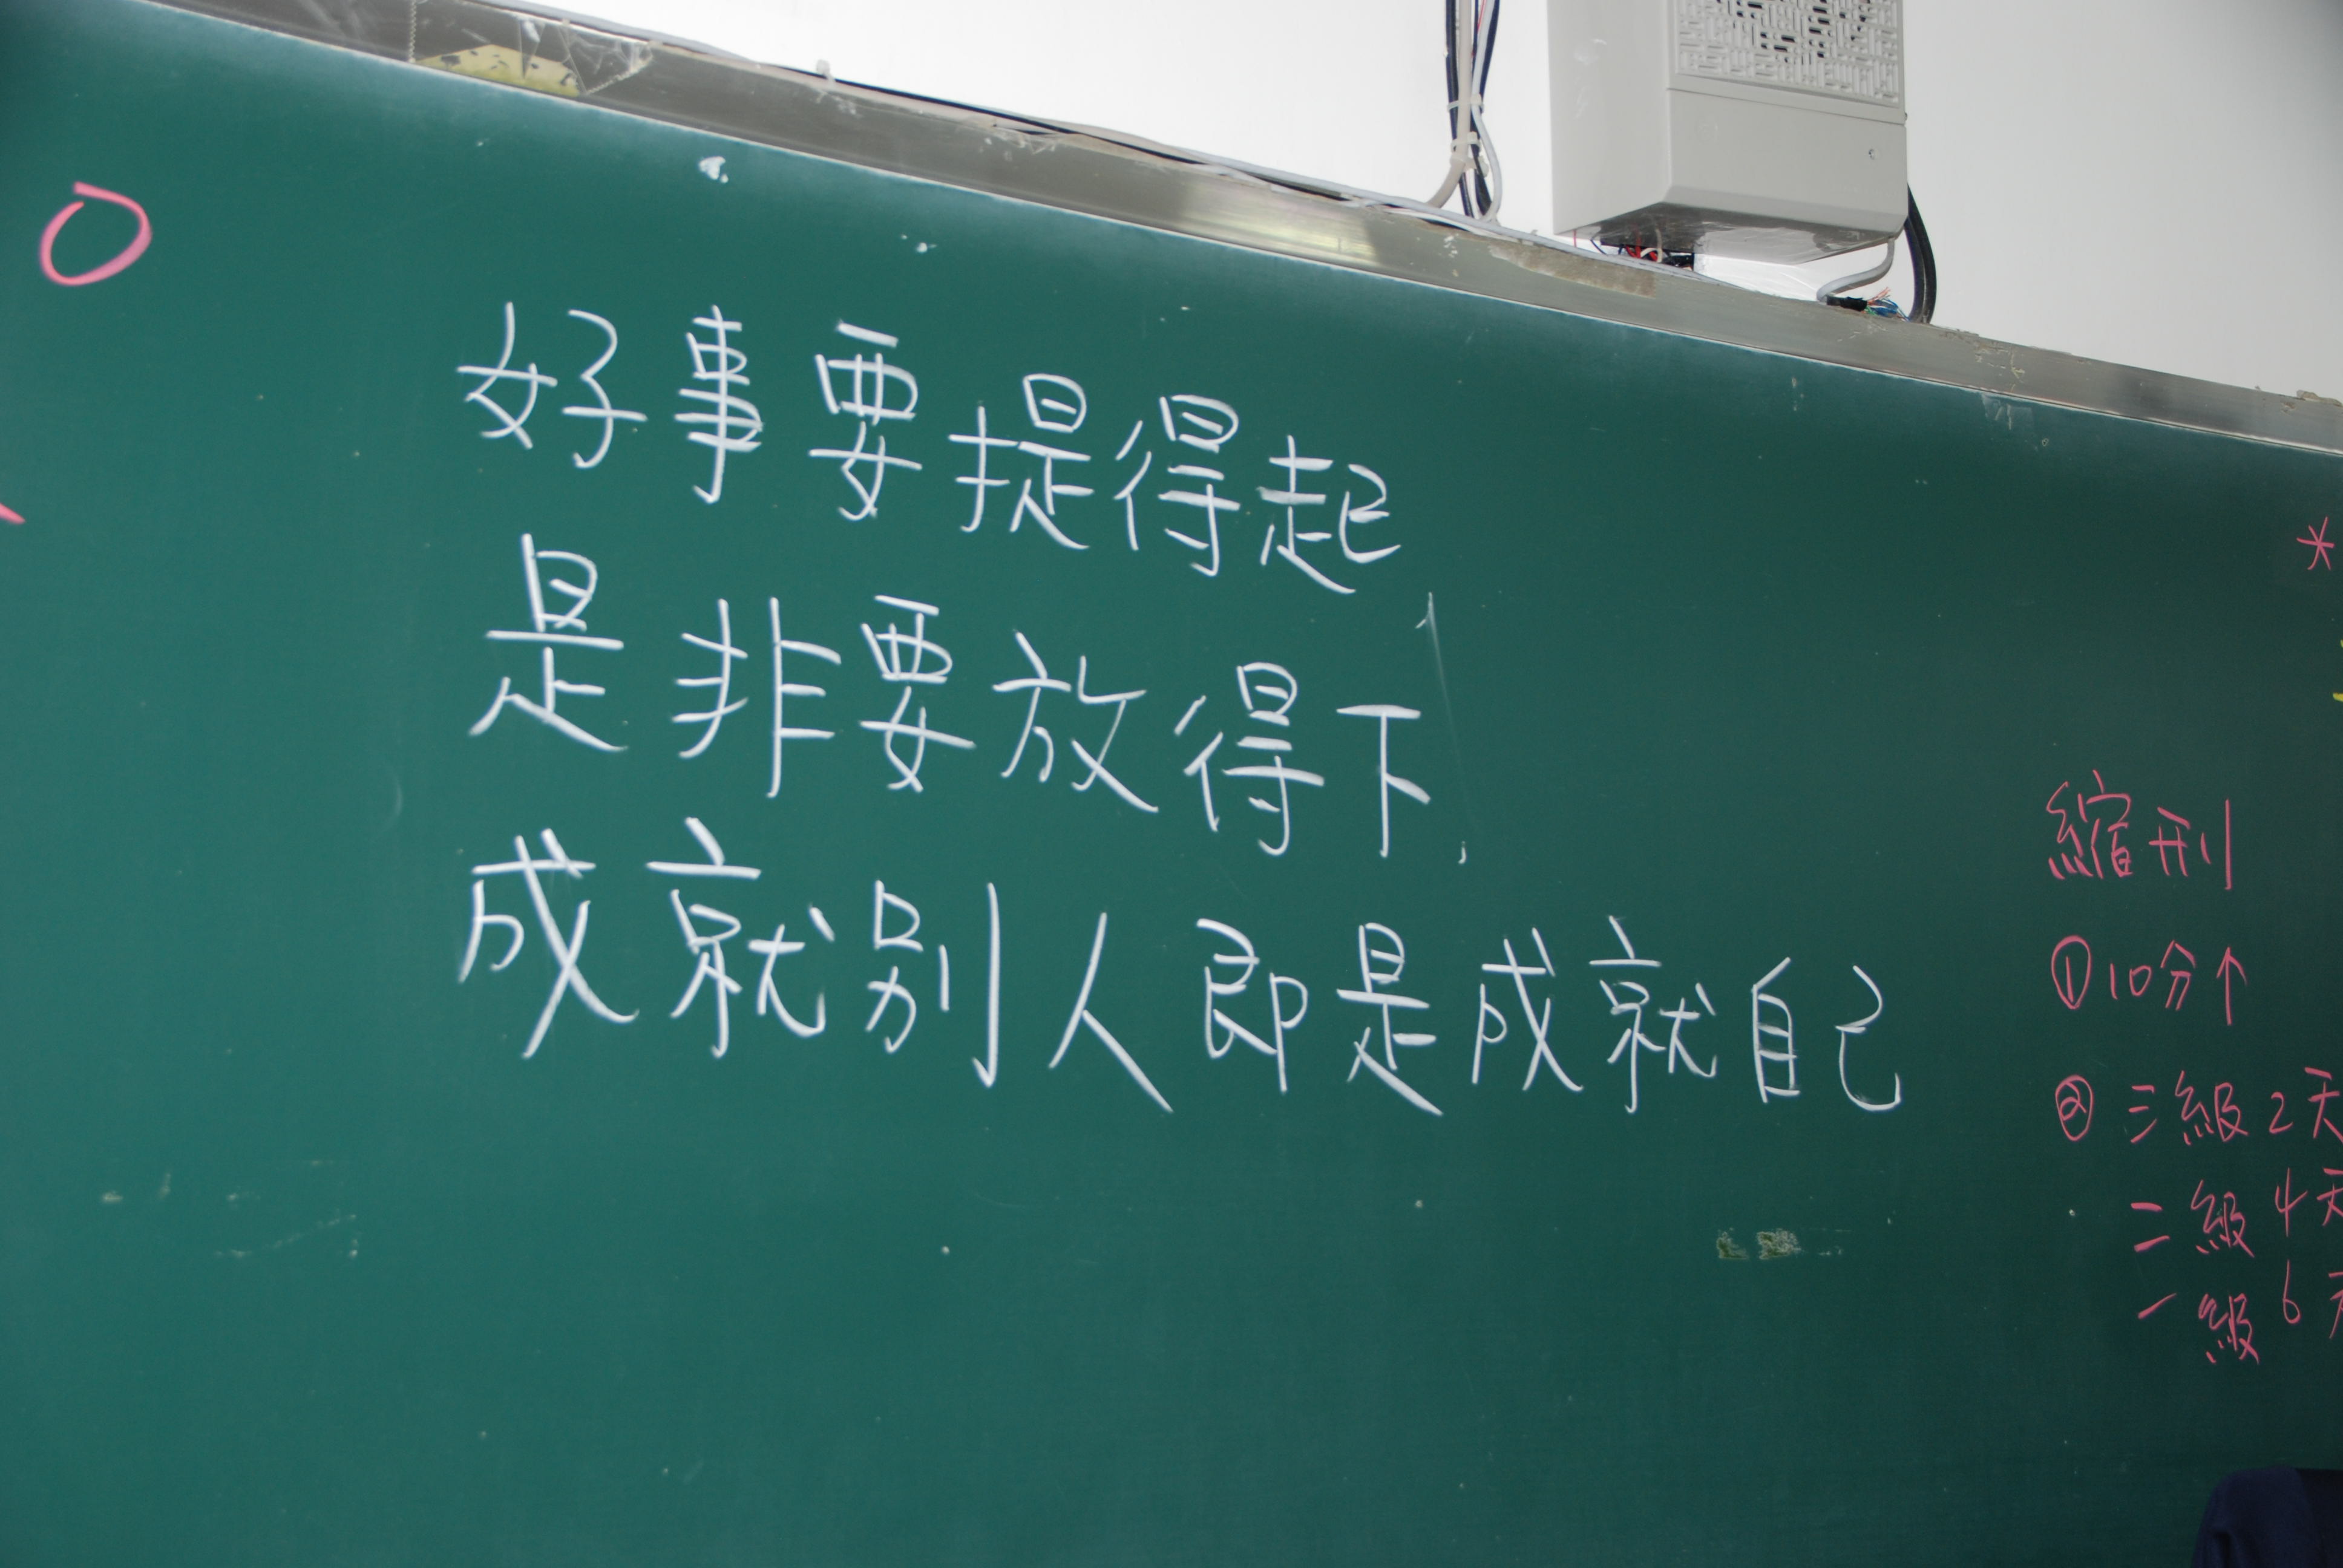 好事要提得起,
是非要放得下,
成就別人即是成就自己
縮刑
①10分↑
②三級2天
二級4天
一級6天